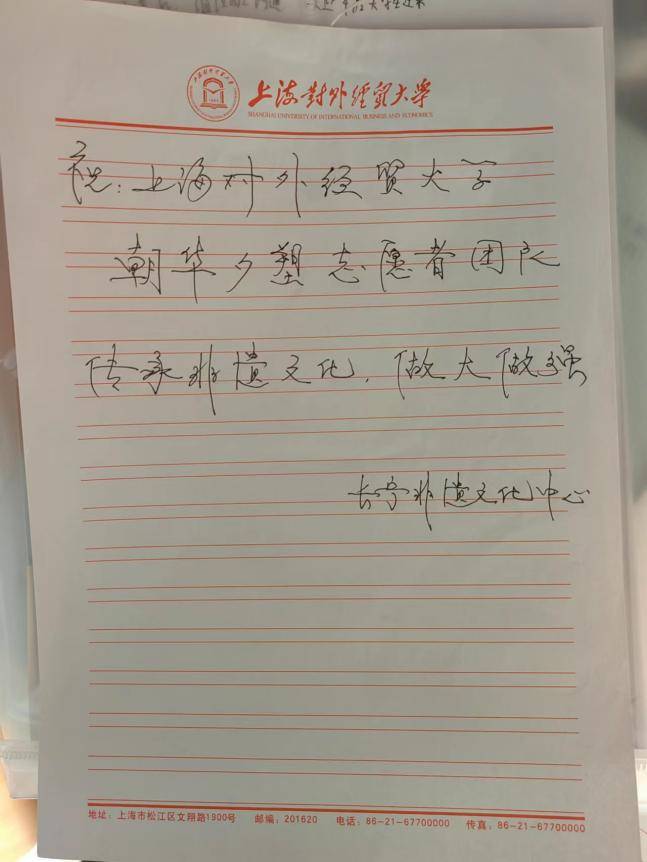 上海對外經貿大學
SHANGHAI UNIVERSITY OF INTERNATIONAL BUSINESS AND ECONOMICS
祝：上海对外经贸大学
朝华夕塑志愿者团队
传承非遗文化，做大做强
长宁非遗文化中心
地址：上海市松江区文翔路1900号 邮编：201620 电话：86-21-67700000 传真：86-21-67700000